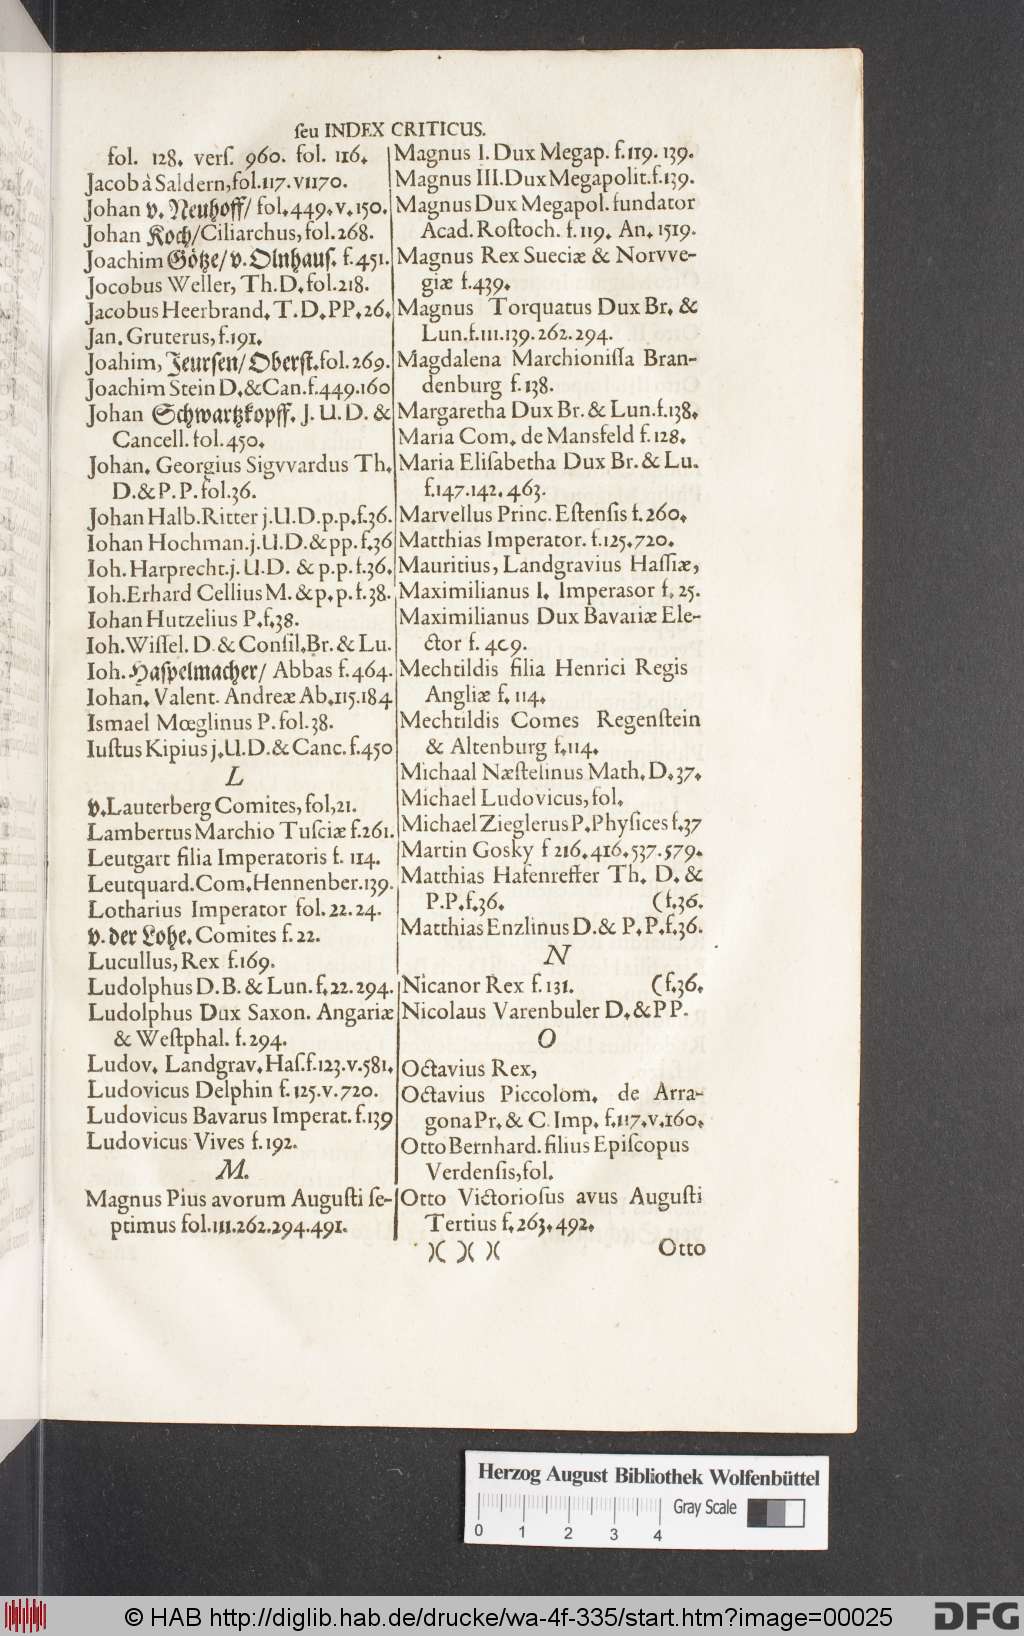 ſeu INDEX CRITICUS.
fol. 128. verſ. 960. fol. 116.
Jacob à Saldern,fol.117.v1170.
Johan v. Neuhoff/ fol.449.v.150.
Johan Koch/Ciliarchus,fol.268.
Joachim Götze/v.Olnhauſ. f.451.
Jocobus Weller, Th.D.fol.218.
Jacobus Heerbrand. T.D.PP.26.
Jan. Gruterus,f.191.
Joahim, Jeurſen/Oberſt.fol.269.
Joachim Stein D.&Can.f.449.160
Johan Schwartzkopff. J.U.D. &
Cancell.fol.450.
Johan. Georgius Sigvvardus Th.
D.&P.P.fol.36.
Johan Halb.Ritter j.U.D.p.p.f.36.
Iohan Hochman.j.U.D.&pp.f.36
Ioh.Harprecht.j.U.D. & p.p.f.36.
Ioh.Erhard Cellius M.& p.p.f.38.
Iohan Hutzelius P.f.38.
Ioh.Wiſſel. D.& Conſil.Br.& Lu.
Ioh.Haſpelmacher/ Abbas f.464.
Iohan. Valent. Andreæ Ab.115.184
Ismael Mœglinus P.fol.38.
Iuſtus Kipius j.U.D.&Canc.f.450
L
v.Lauterberg Comites,fol,21.
Lambertus Marchio Tuſciæ f.261.
Leutgart filia Imperatoris f. 114.
Leutquard.Com.Hennenber.139.
Lotharius Imperator fol.22.24.
v.der Lohe.Comites f.22.
Lucullus,Rex f.169.
Ludolphus D.B.& Lun.f.22.294.
Ludolphus Dux Saxon. Angariæ
& Weſtphal. f.294.
Ludov. Landgrav.Haſ.f.123.v.581.
Ludovicus Delphin f.125.v.720.
Ludovicus Bavarus Imperat.f.139
Ludovicus Vives f.192.
M.
Magnus Pius avorum Auguſti ſe-
ptimus fol.111.262.294.491.
Magnus I.Dux Megap. f.119.139.
Magnus III.Dux Megapolit.f.139.
Magnus Dux Megapol.fundator
Acad.Roſtoch. f.119. An.1519.
Magnus Rex Sueciæ & Norvve-
giæ f.439.
Magnus Torquatus Dux Br. &
Lun.f.111.139.262.294.
Magdalena Marchioniſſa Bran-
denburg f.138.
Margaretha Dux Br.& Lun.f.138.
Maria Com. de Mansfeld f.128.
Maria Eliſabetha Dux Br.& Lu.
f.147.142.463.
Marvellus Princ.Eſtenſis f.260.
Matthias Imperator. f.125.720.
Mauritius,Landgravius Haſſiæ,
Maximilianus I. Imperasor f. 25.
Maximilianus Dux Bavariæ Ele-
ctor f.409.
Mechtildis filia Henrici Regis
Angliæ f.114.
Mechtildis Comes Regenſtein
& Altenburg f.114.
Michaal Næſtelinus Math.D.37.
Michael Ludovicus,fol.
Michael Zieglerus P.Phyſices f.37
Martin Gosky f 216.416.537.579.
Matthias Hafenreffer Th. D. &
P.P.f.36. (f.36.
Matthias Enzlinus D.& P.P.f.36.
N
Nicanor Rex f.131. (f.36.
Nicolaus Varenbuler D.&PP.
O
Octavius Rex,
Octavius Piccolom. de Arra-
gona Pr.& C.Imp. f.117.v.160.
Otto Bernhard.filius Epiſcopus
Verdenſis,fol.
Otto Victorioſus avus Auguſti
Tertius f.263.492.
)( )( )( Otto
Herzog August Bibliothek Wolfenbüttel
Gray Scale
0 1 2 3 4
© HAB http://diglib.hab.de/drucke/wa-4f-335/start.htm?image=00025
DFG